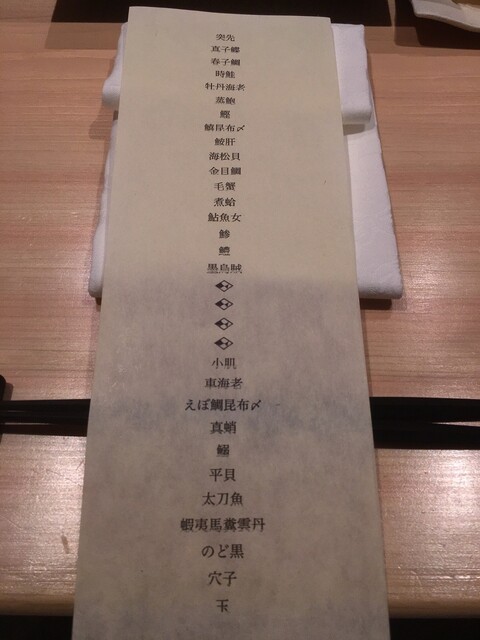 突先
真子鰈
春子鯛
時鮭
牡丹海老
蒸鮑
鰹
鱚昆布〆
鮟肝
海松貝
金目鯛
毛蟹
煮蛤
鮎魚女
鯵
鱧
墨烏賊
小肌
車海老
えぼ鯛昆布〆
真蛸
鰯
平貝
太刀魚
蝦夷馬糞雲丹
のど黒
穴子
玉